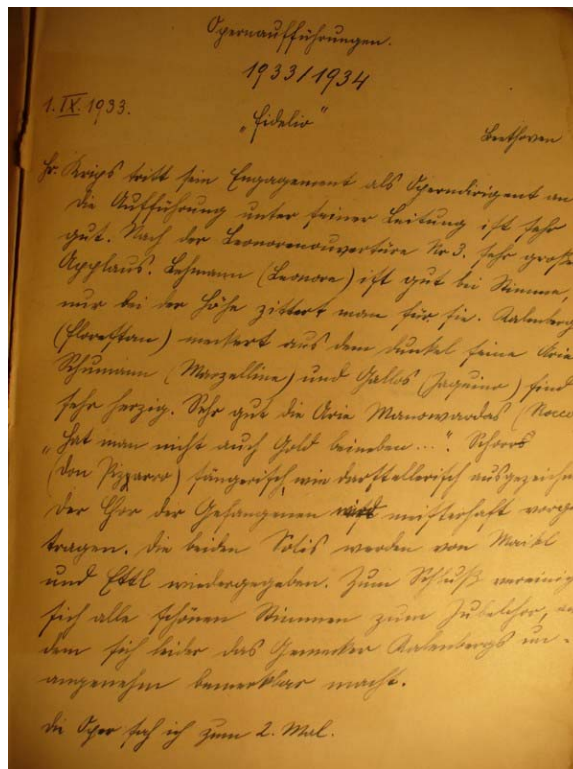 Opernaufführungen.
1933/1934
1. IX. 1933.
„Fidelio“
Beethoven
Hr. Krips tritt sein Engagement als Operndirigent an
die Aufführung unter seiner Leitung ist sehr
gut. Nach der Leonorenouvertüre Nr 3. sehr großer
Applaus. Lehmann (Leonore) ist gut bei Stimme,
nur bei der Höhe zittert man für sie. Kalenberg
(Florestan) meckert aus dem dunkel seine Arie
Schumann (Marzelline) und Gallos (Jaquino) sind
sehr herzig. Sehr gut die Arie Manowardas (Rocco
„Hat man nicht auch Gold beineben...“. Schorrs
(Don Pizzarro) sängerisch wie darstellerisch ausgezeichn
der Chor der Gefangenen wird meisterhaft vorge
tragen. Die beiden Solis werden von Maikl
und Ettl wiedergegeben. Zum Schluß vereinig
sich alle schönen Stimmen zum Jubelchor,
dem sich leider das Gemecker Kalenbergs un-
angenehm bemerkbar macht.
Die Oper sah ich zum 2. Mal.